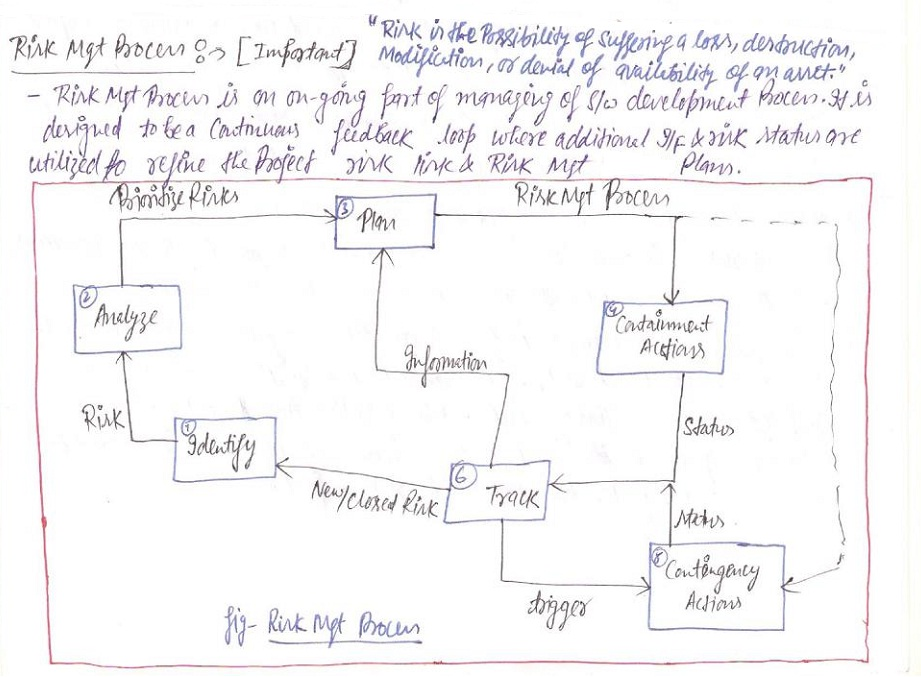 Risk Mgt Process :→ [Important]
"Risk is the Possibility of suffering a loss, destruction,
Modification, or denial of availability of an asset."
- Risk Mgt Process is an on-going part of managing of S/w development Process. It is
designed to be a Continuous feedback loop where additional I/F & risk status are
utilized to refine the Project risk list & Risk Mgt Plans.
Prioritize Risks
Risk Mgt Process
3 Plan
2
Analyze
4
Containment
Actions
Information
Risk
Status
1
Identify
6
Track
New/Closed Risk
Status
5
Contingency
Actions
trigger
fig- Risk Mgt Process